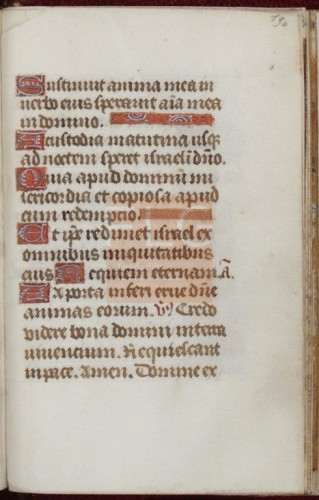 Sustinuit anima mea in
verbo eius speravit aīa mea
in domino.
A custodia matutina usq̄
ad noctem speret israel in dn̄o.
Quia apud dominū mi
sericordia et copiosa apud
eum redemptio.
Et ip̄e redimet israel ex
omnibus iniquitatibus
eius Requiem eternam. ā.
A porta inferi erue dn̄e
animas eorum. ℣ Credo
videre bona domini in terra
viventium. Requiescant
in pace. Amen. Domine ex